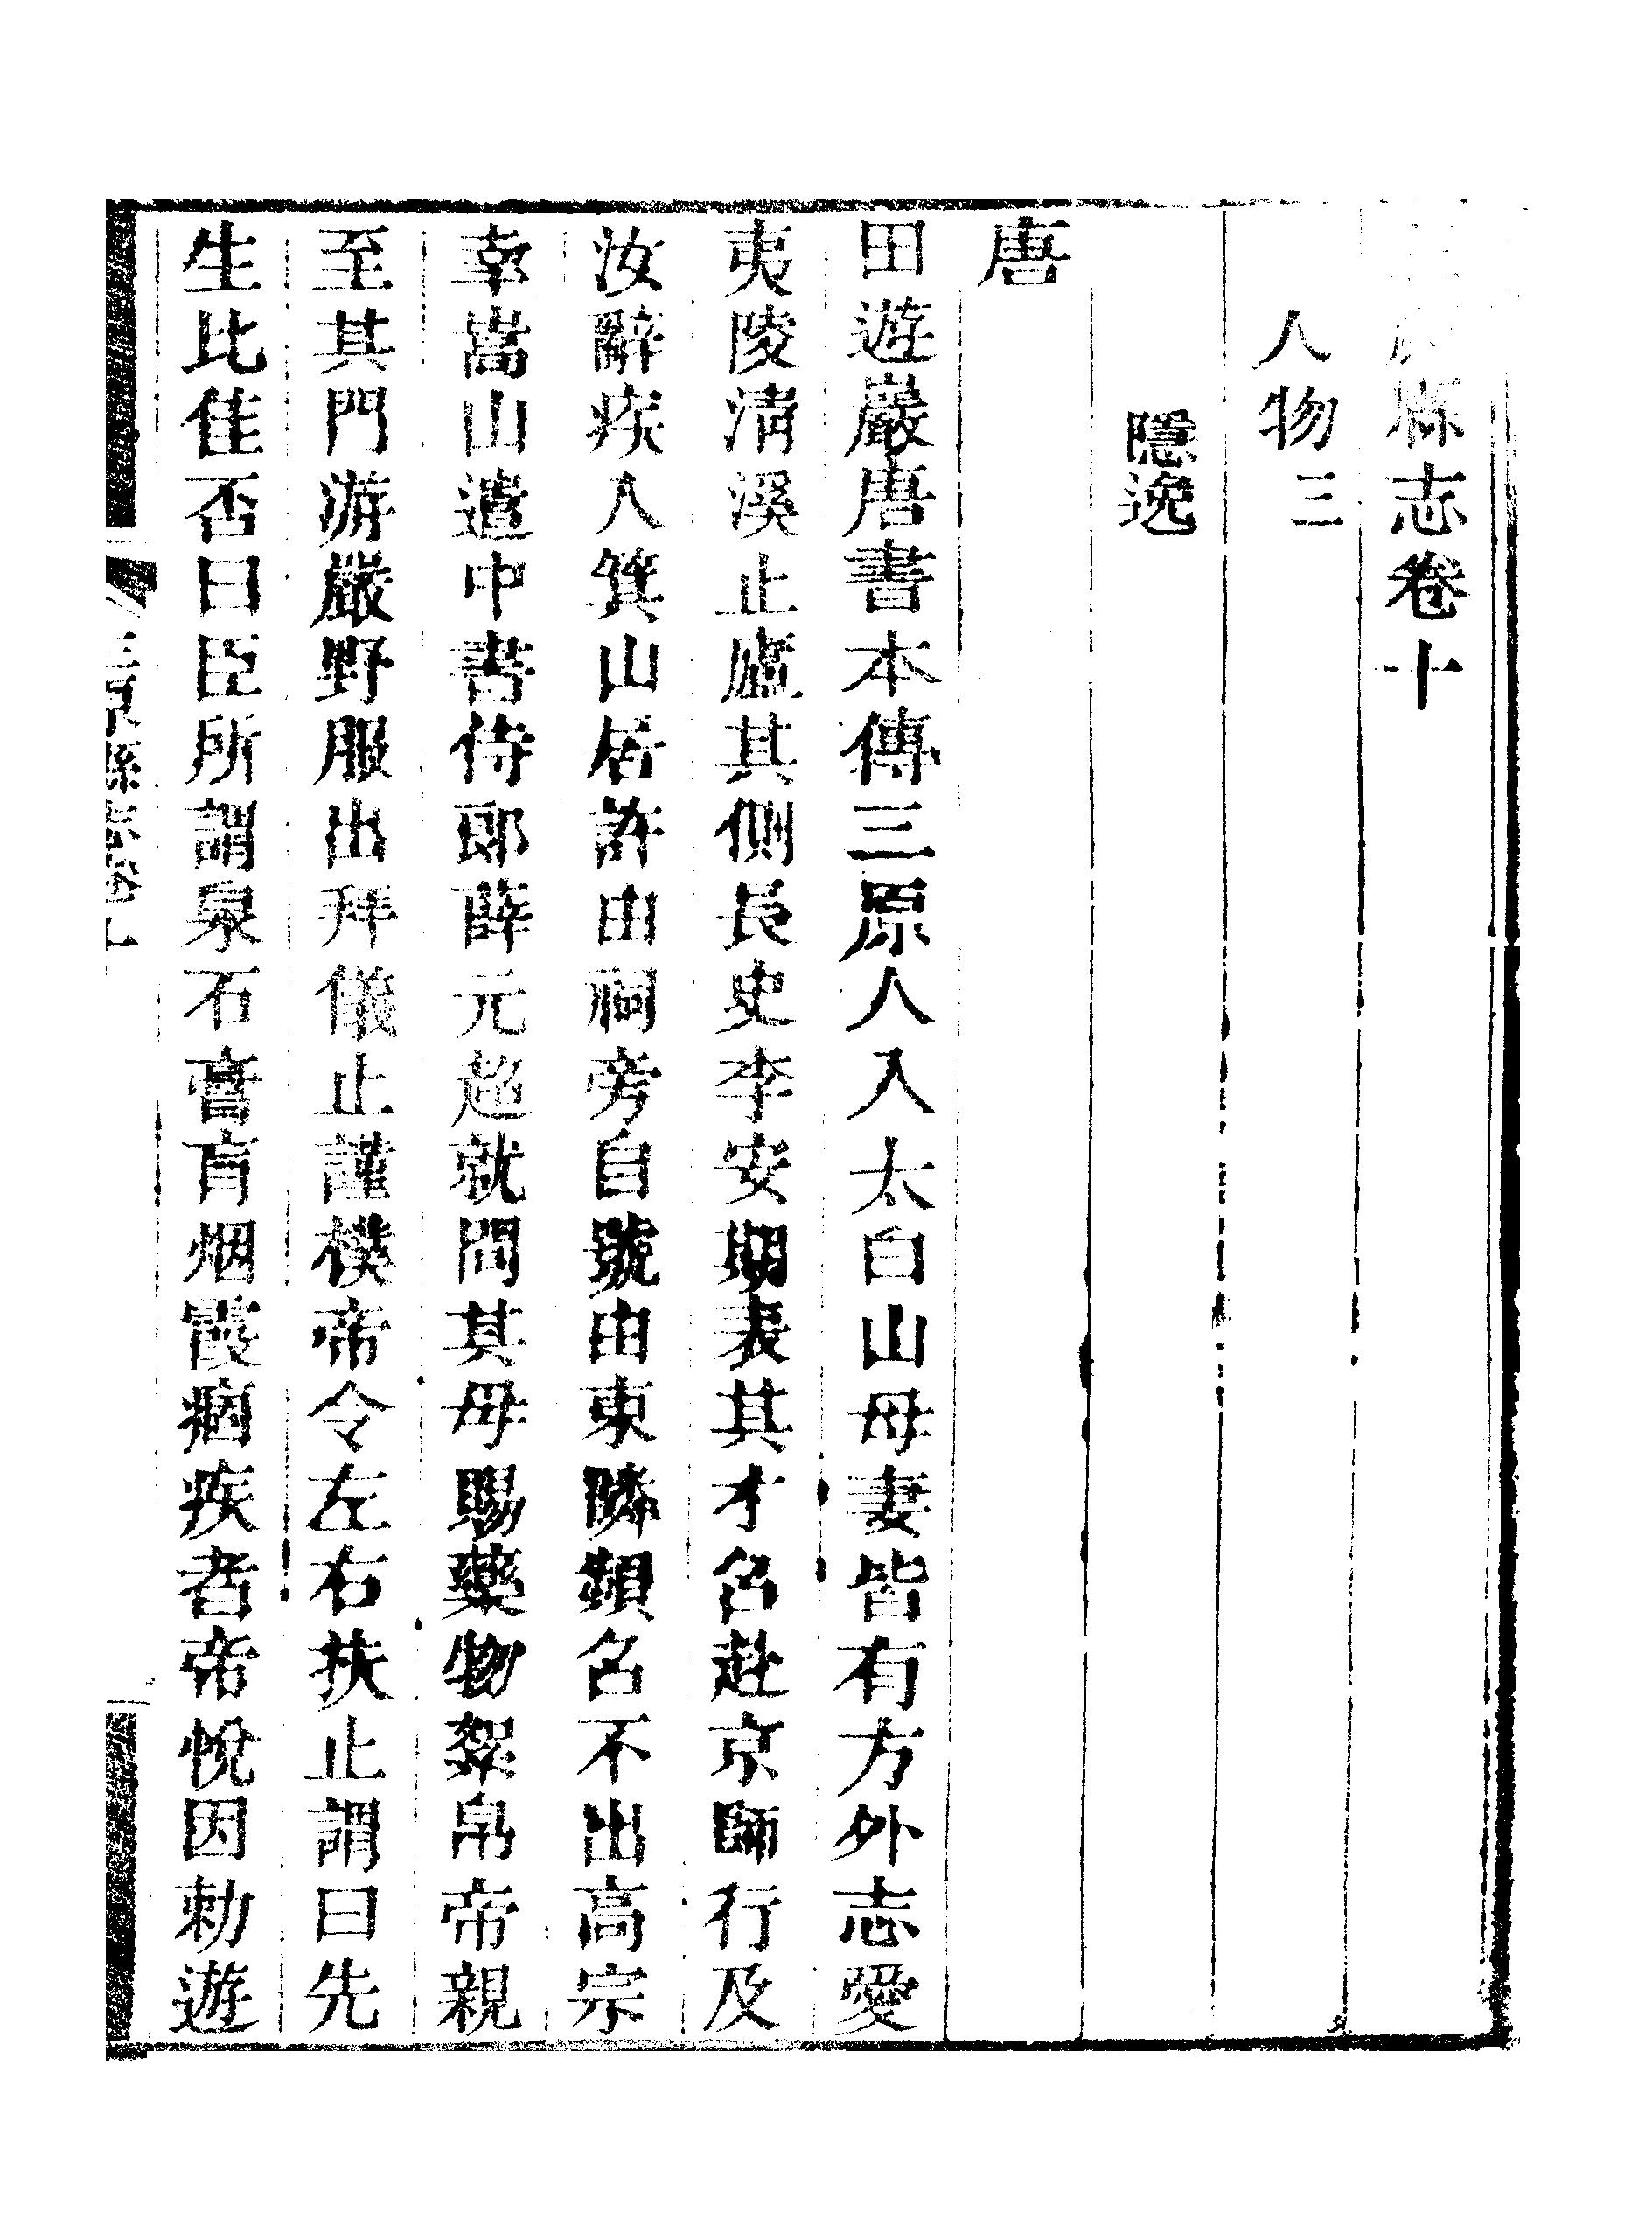 縣志卷十
人物三
隱逸
唐
田遊巖唐書本傳三原人入太白山母妻皆有方外志愛
夷陵淸溪止廬其側長史李安期表其才名赴京師行及
汝辭疾入箕山居許由祠旁自號由東隣頻名不出高宗
幸嵩山遣中書侍郎薛元超就問其母賜藥物絮帛帝親
至其門游巖野服出拜儀止謹樸帝令左右扶止謂曰先
生比佳否曰臣所謂泉石膏肓烟霞痼疾者帝悅因勅遊